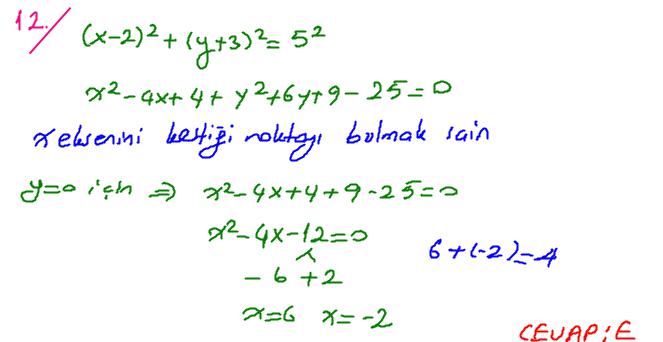 12.
(x-2)²+(y+3)²=5²
x²-4x+4+y²+6y+9-25=0
x eksenini kestiği noktayı bulmak için
y=0 için ⇒ x²-4x+4+9-25=0
x²-4x-12=0
-6 +2
6+(-2)=-4
x=6 x=-2
CEVAP:E